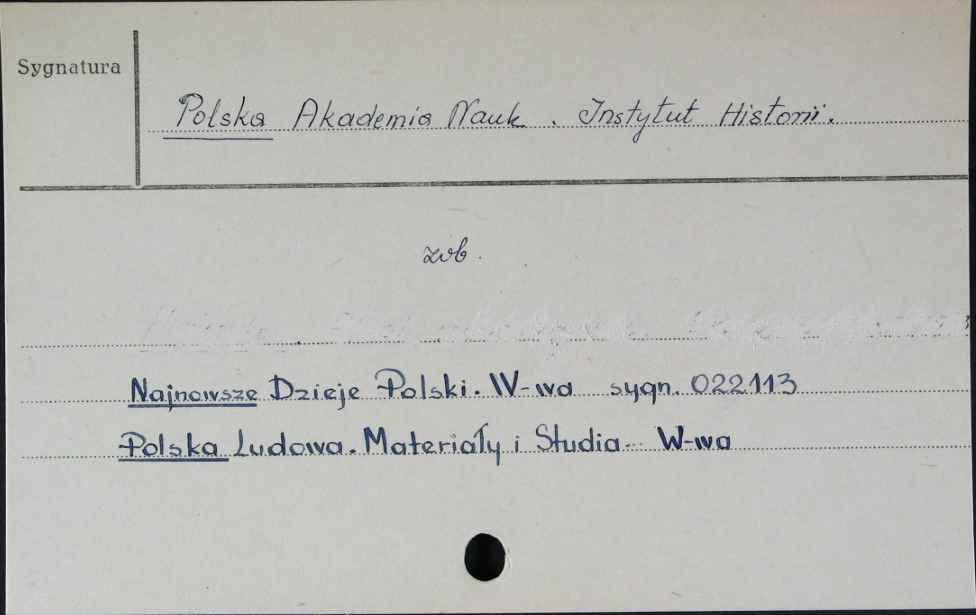 Sygnatura
Polska Akademia Nauk. Instytut Historii.
zob.
Najnowsze Dzieje Polski. W-wa sygn. 022113
Polska Ludowa. Materiały i Studia W-wa